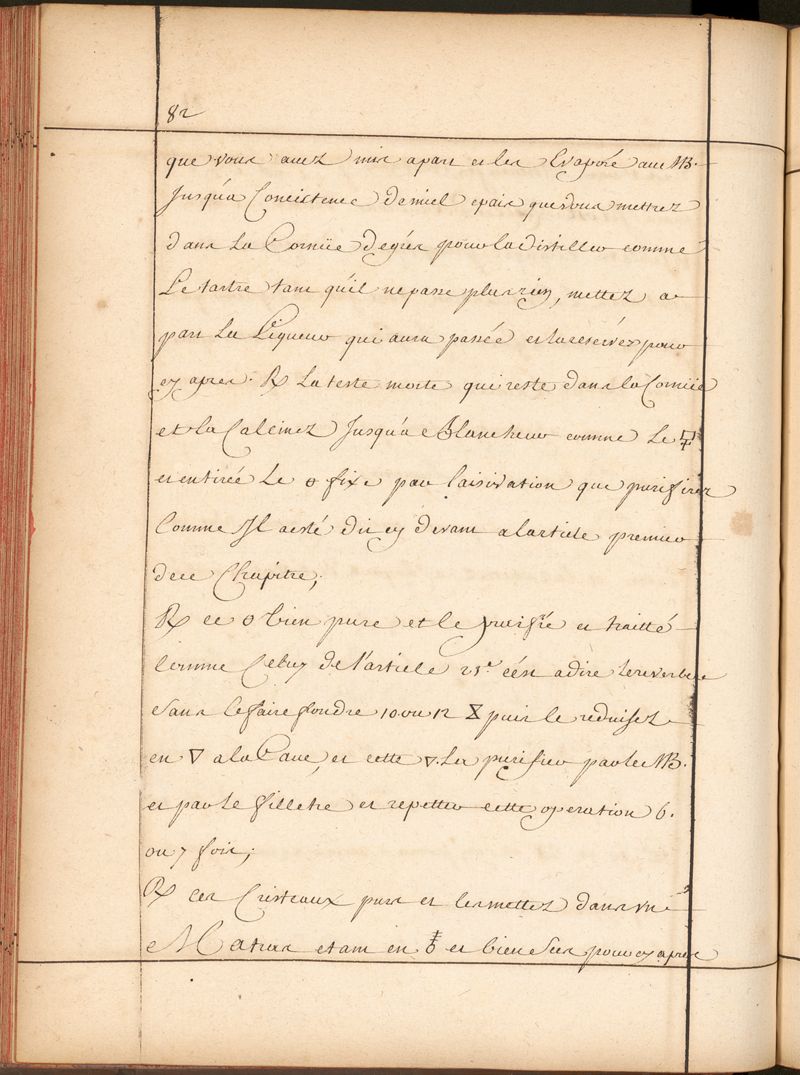 82
que vous auez mis apart et les Evaporé aue MB.
Jusqu'a Concistence De miel epais que vous mettrez
dans La Cornüe Degrés pour la distiller comme
Le tartre tant qu'il ne passe plus rien, mettez a
part La Liqueur qui aura passée et la reservez pour
cy apres. ℞ La teste morte qui reste dans la Cornüe
et la Calcinez Jusqu'a Blancheur comme Le 🜿
et entirée Le θ fixe par laisivation que purifirez
Comme Jl a esté dit cy devant a larticle premier
de ce Chapitre;
℞ ce θ bien pure et le et traitté
Comme Celuy de l'article 21e c'ést a dire Lereverbere
sans le faire fondre 10 ou 12 ⧖ puis le reduisez
en 🜄 a la Cave, et cette 🜄. La purifier par le MB.
et par le filletre et repetter cette operation 6.
ou 7 fois;
℞ ces Cristeaux purs et les mettez dans un
Matras etant en ♁ et bien secs pour cy apres